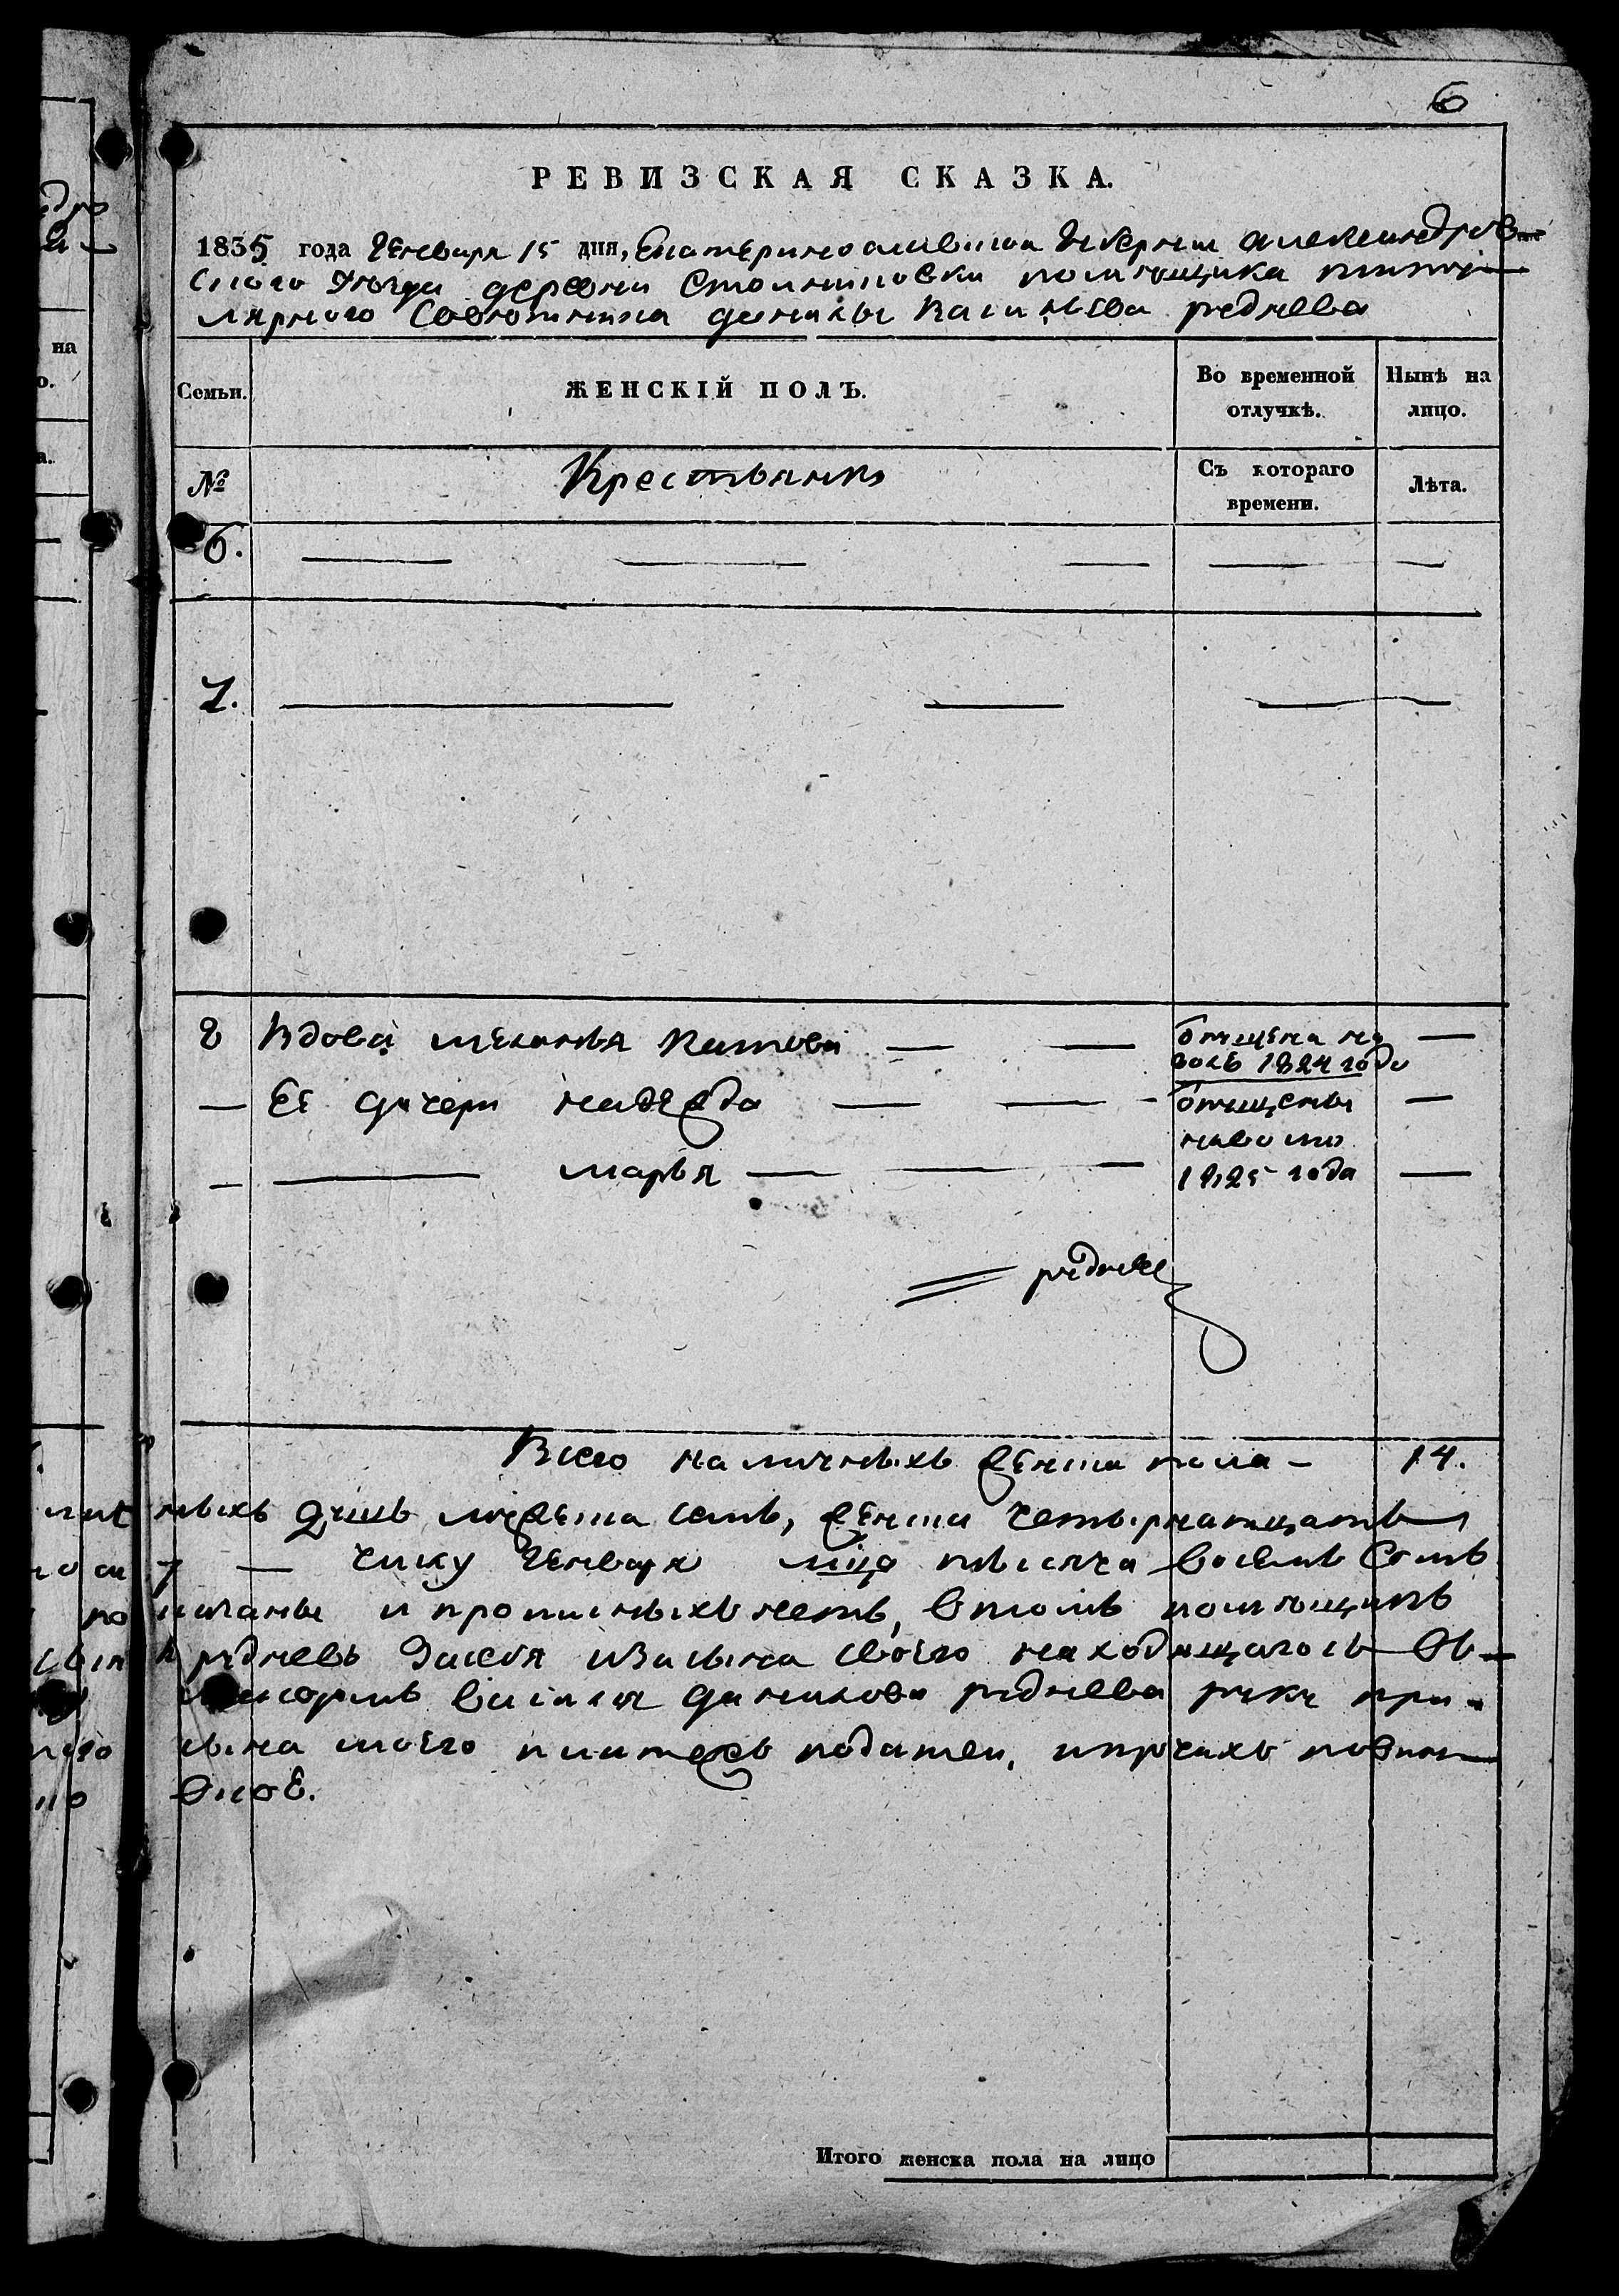 6
РЕВИЗСКАЯ СКАЗКА.
1835 года Генваря 15 дня, Екатеринославской Губернии Александров
ского уезда деревни помещика титу
лярного Советника Данилы Васильева Руднева
Семьи. ЖЕНСКІЙ ПОЛЪ. Во временной отлучкѣ. Нынѣ на лицо.
№ Крестьянъ Съ котораго времени. Лѣта.
6.
7.
8 Вдова Меланья отпущена на
волю 1824 года
Ее дочери Надежда отпущены
на волю
Марья 1825 года
Руднев
Всего наличныхъ женска пола 14.
ныхъ душъ мужеска семь, женска четырнатцать
7 — числу Генваря мца тысяча восемь сотъ
писаны и прописныхъ нетъ, въ томъ помещикъ
Рудневъ за себя и за сына своего находящагося въ
Василя Данилова Руднева руку при
сына моего платежъ податей, и прочихъ
Итого женска пола на лицо